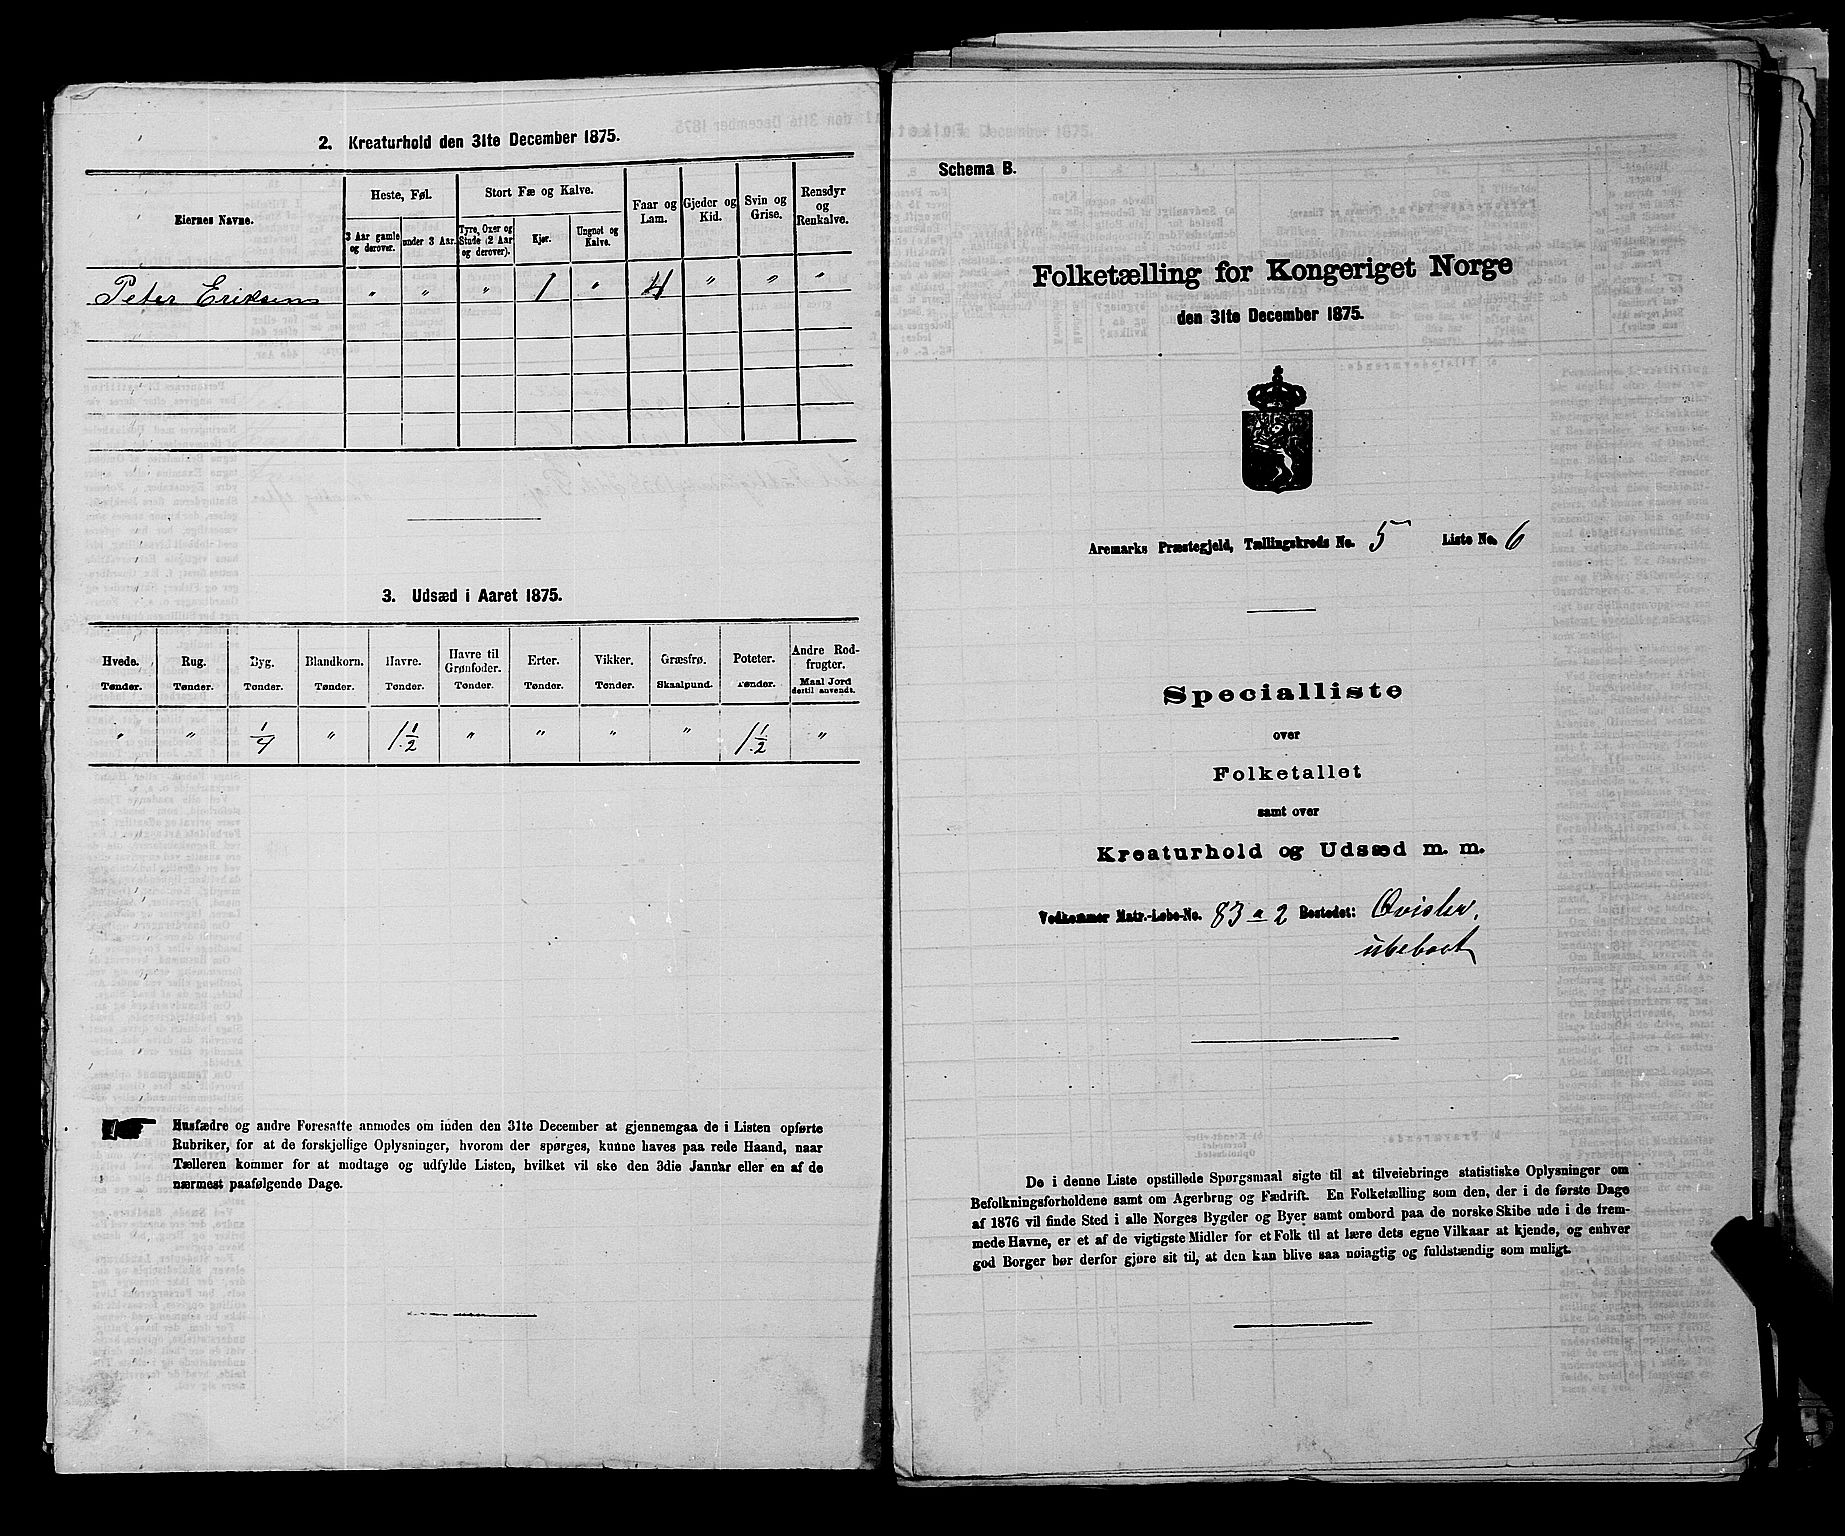 2. Kreaturhold den 31te December 1875.
Eiernes Navne.
Heste, Føl.
Stort Fæ og Kalve.
Faar og Lam.
Gjeder og Kid.
Svin og Grise.
Rensdyr og Renkalve.
3 Aar gamle og derover.
under 3 Aar.
Tyre, Oxer og Stude (2 Aar og derover).
Kjør.
Ungnøt og Kalve.
Peter Eriksen " " " 1 " 4 " " "
3. Udsæd i Aaret 1875.
Hvede. Rug. Byg. Blandkorn. Havre. Havre til Grønfoder. Erter. Vikker. Græsfrø. Poteter. Andre Rodfrugter.
Tønder. Tønder. Tønder. Tønder. Tønder. Tønder. Tønder. Tønder. Skaalpund. Tønder. Maal Jord dertil anvendt.
" " 1/4 " 1 1/2 " " " " 1 1/2 "
Husfædre og andre Foresatte anmodes om inden den 31te December at gjennemgaa de i Listen opførte
Rubriker, for at de forskjellige Oplysninger, hvorom der spørges, kunne haves paa rede Haand, naar
Tælleren kommer for at modtage og udfylde Listen, hvilket vil ske den 3die Januar eller en af de
nærmest paafølgende Dage.
Schema B.
Folketælling for Kongeriget Norge
den 31te December 1875.
Aremarks Præstegjeld, Tællingskreds No. 5 Liste No. 6
Specialliste
over
Folketallet
samt over
Kreaturhold og Udsæd m. m.
Vedkommer Matr.-Løbe-No. 83 a 2 Bostedet: Qvisler,
ubeboet
De i denne Liste opstillede Spørgsmaal sigte til at tilveiebringe statistiske Oplysninger om
Befolkningsforholdene samt om Agerbrug og Fædrift. En Folketælling som den, der i de første Dage
af 1876 vil finde Sted i alle Norges Bygder og Byer samt ombord paa de norske Skibe ude i de frem-
mede Havne, er et af de vigtigste Midler for et Folk til at lære dets egne Vilkaar at kjende, og enhver
god Borger bør derfor gjøre sit til, at den kan blive saa nøiagtig og fuldstændig som muligt.